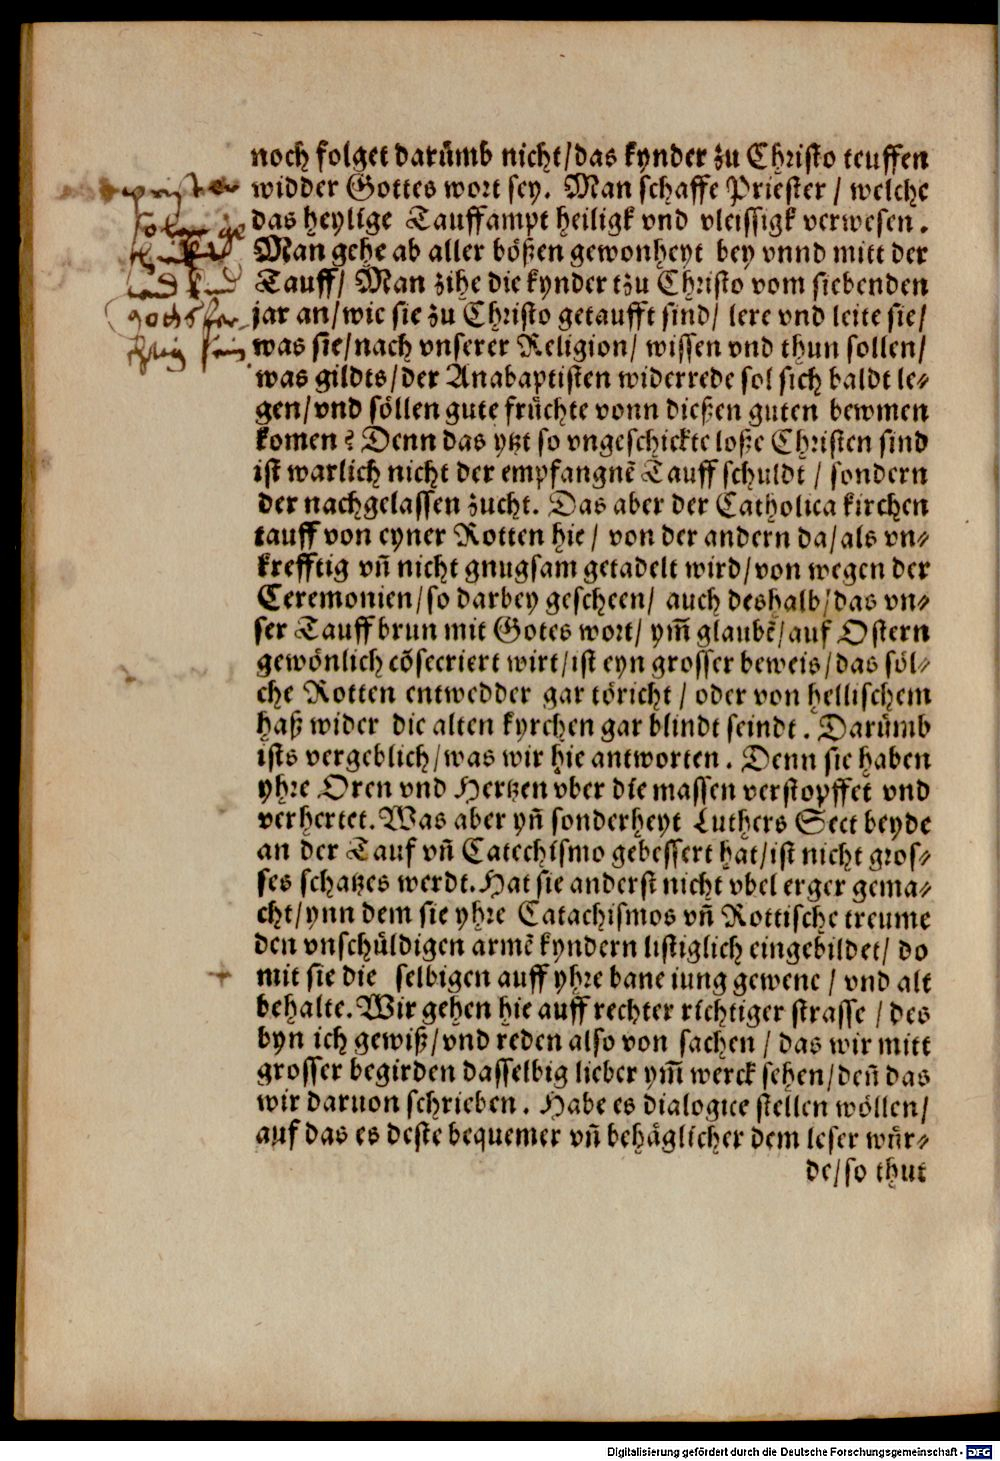 noch folget darůmb nicht/das kynder zu Christo teuffen
widder Gottes wort sey. Man schaffe Priester / welche
das heylige Tauffampt heiligk vnd vleissigk verwesen.
Man gehe ab aller bößen gewonheyt bey vnnd mitt der
Tauff/ Man zihe die kynder tzu Christo vom siebenden
jar an/wie sie zu Christo getaufft sind/ lere vnd leite sie/
was sie/nach vnserer Religion/ wissen vnd thun sollen/
was gildts/der Anabaptisten widerrede sol sich baldt le⸗
gen/vnd söllen gute früchte vonn dießen guten bewmen
komen? Denn das ytzt so vngeschickte loße Christen sind
ist warlich nicht der empfangnē Tauff schuldt / sondern
der nachgelassen zucht. Das aber der Catholica kirchen
tauff von eyner Rotten hie/ von der andern da/als vn⸗
krefftig vn̄ nicht gnugsam getadelt wird/von wegen der
Ceremonien/so darbey gescheen/ auch deshalb/das vn⸗
ser Tauffbrun mit Gotes wort/ ym̄ glaubē/auf Ostern
gewönlich cōsecriert wirt/ist eyn grosser beweis/das söl⸗
che Rotten entwedder gar töricht / oder von hellischem
haß wider die alten kyrchen gar blindt seindt. Darůmb
ists vergeblich/was wir hie antworten. Denn sie haben
yhre Oren vnd Hertzen vber die massen verstopffet vnd
verhertet. Was aber yn̄ sonderheyt Luthers Sect beyde
an der Tauf vn̄ Catechismo gebessert hat/ist nicht gros⸗
ses schatzes werdt. Hat sie anderst nicht vbel erger gema⸗
cht/ynn dem sie yhre Catachismos vn̄ Rottische treume
den vnschüldigen armē kyndern listiglich eingebildet/ do
mit sie die selbigen auff yhre bane iung gewene / vnd alt
behalte. Wir gehen hie auff rechter richtiger strasse / des
byn ich gewiß/vnd reden also von sachen / das wir mitt
grosser begirden dasselbig lieber ym̄ werck sehen/den̄ das
wir daruon schrieben. Habe es dialogice stellen wöllen/
auf das es deste bequemer vn̄ behäglicher dem leser wür⸗
de/so thut
priester
Digitalisierung gefördert durch die Deutsche Forschungsgemeinschaft - DFG